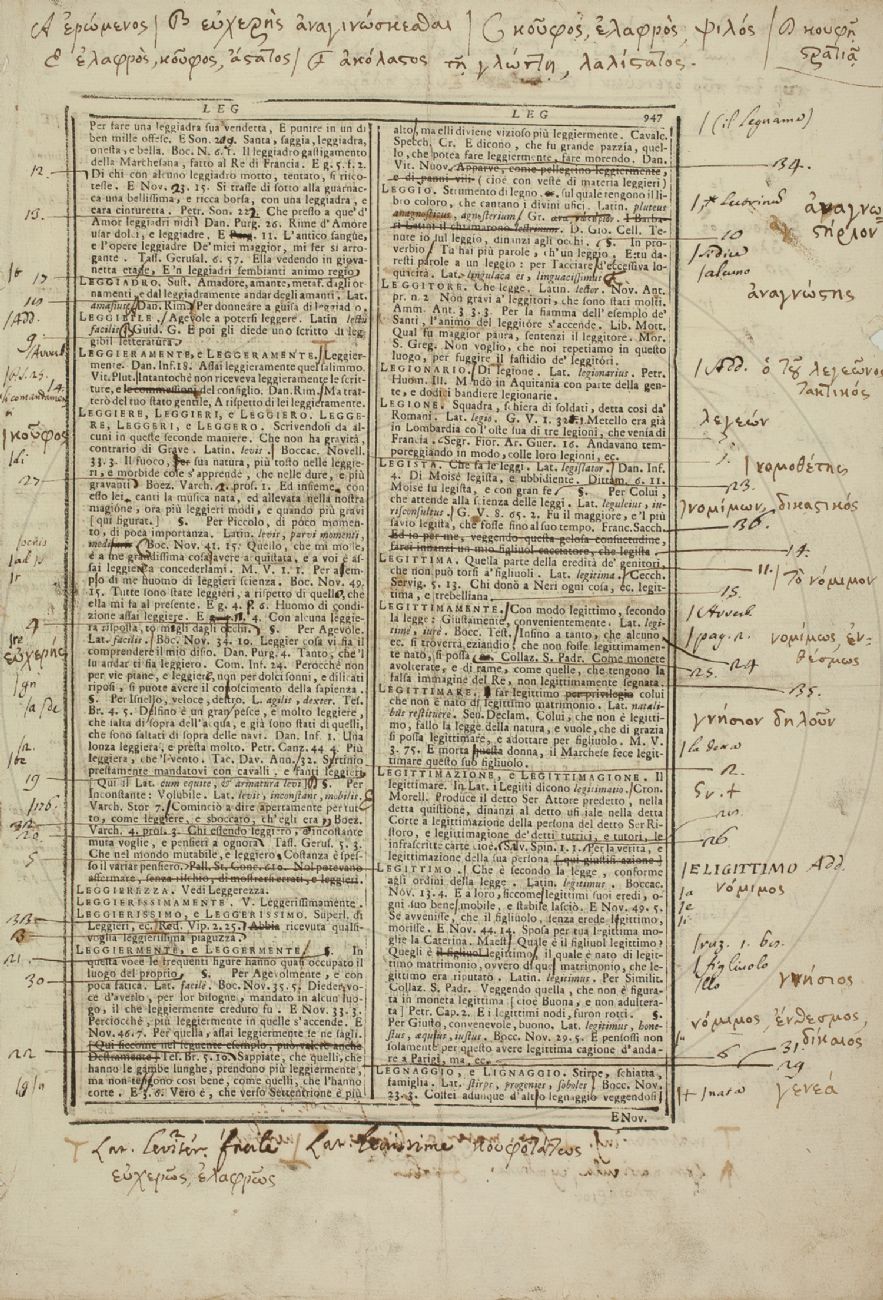 A ἐρώμενος / B εὐχερὴς ἀναγινώσκεσθαι / C κοῦφος, ἐλαφρὸς, ψιλός / D κουφὴ
E ἐλαφρὸς, κοῦφος, / F ἀκόλαστος τῇ γλώττῃ,
LEG
LEG 947
Per fare una leggiadra sua vendetta, E punire in un dì
ben mille offese. E Son. Santa, saggia, leggiadra,
onesta, e bella. Boc. N. 6. Il leggiadro gastigamento
della Marchesana, fatto al Re di Francia. E g. 5. f. 2.
Di chi con alcuno leggiadro motto, tentato, si riscotesse.
E Nov. 23. 15. Si trasse di sotto alla guarnacca
una bellissima, e ricca borsa, con una leggiadra, e
cara cinturetta. Petr. Son. Che presso a que' d'
Amor leggiadri nidi Dan. Purg. 26. Rime d'Amore
usar dolci, e leggiadre. E 11. L'antico sangue,
e l'opere leggiadre De' miei maggior, mi fer sì arrogante.
Tass. Gerusal. 6. 57. Ella vedendo in giovanetta
etade, E'n leggiadri sembianti animo regio
LEGGIADRO. Sust. Amadore, amante, metaf. dagli ornamenti,
e dal leggiadramente andar degli amanti. Lat.
amasius. Dan. Rim. Per donneare a guisa di leggiadro.
LEGGIBILE. Agevole a potersi leggere. Latin
facilis Guid. G. E poi gli diede uno scritto di leggibil
letteratura.
LEGGIERAMENTE, e LEGGERAMENTE. Leggiermente.
Dan. Inf. 18. Assai leggieramente quel salimmo.
Vit. Plut. Intantoché non riceveva leggieramente le scritture,
e del consiglio. Dan. Rim. Ma tratterò
del tuo stato gentile, A rispetto di lei leggieramente.
LEGGIERE, LEGGIERI, e LEGGIERO. LEGGERE,
LEGGERI, e LEGGERO. Scrivendosi da alcuni
in queste seconde maniere. Che non ha gravità,
contrario di Grave. Latin. levis. Boccac. Novell.
33. 3. Il fuoco, sua natura, più tosto nelle leggieri,
e morbide cose s'apprende, che nelle dure, e più
gravanti Boez. Varch. 2. pros. 1. Ed insieme con
esso lei canti la musica nata, ed allevata nella nostra
magione, ora più leggieri modi, e quando più gravi
[qui figurat.] §. Per Piccolo, di poco momento,
di poca importanza. Latin. levis, parvi momenti,
Boc. Nov. 41. 15. Quello, che mi mosse,
è a me grandissima cosa avere acquistata, e a voi è assai
leggiera concederlami. M. V. 1. 1. Per asempio
di me huomo di leggieri scienza. Boc. Nov. 49.
15. Tutte sono state leggieri, a rispetto di quello, che
ella mi fa al presente. E g. 4. 6. Huomo di condizione
assai leggiere. E 4. Con alcuna leggiera
risposta, to migli dagli occhi. §. Per Agevole.
Lat. facilis. Boc. Nov. 34. 10. Leggier cosa vi sia il
comprendere il mio disio. Dan. Purg. 4. Tanto, che'l
su andar ti sia leggiero. Com. Inf. 24. Perocché non
per vie piane, e leggieri, non per dolci sonni, e dilicati
riposi, si puote avere il conoscimento della sapienza.
§. Per Isnello, veloce, destro. L. agilis, dexter. Tes.
Br. 4. 5. Delfino è un gran pesce, e molto leggiere,
che salta di sopra dell'acqua, e già sono stati di quelli,
che sono saltati di sopra delle navi. Dan. Inf. 1. Una
lonza leggiera, e presta molto. Petr. Canz. 44 4. Più
leggiera, che'l vento. Tac. Dav. Ann. 32. Sortinio
prestamente mandatovi con cavalli, e fanti leggieri
Qui il Lat. cum equite, & armatura levi §. Per
Incostante: Volubile. Lat. levis, inconstant, mobilis.
Varch. Stor 7. Cominciò a dire apertamente per tutto,
come leggiere, e sboccato, ch'egli era Boez.
Varch. 4. pros. 3. Chi essendo leggiero, e incostante
muta voglie, e pensieri a ognora Tass. Gerus. 5. 3.
Che nel mondo mutabile, e leggiero, Costanza è spesso
il variar pensiero. Pall. St. Conc. 610. Nol potevano
affermare, senza rischio, di mostrersi errati, e leggieri.
LEGGIEREZZA. Vedi Leggerezza.
LEGGIERISSIMAMENTE. V. Leggerissimamente.
LEGGIERISSIMO, e LEGGERISSIMO. Superl. di
Leggieri, ec. Red. Vip. 2. 25. Abbia ricevuta qualsivoglia
leggierissima piaguzza.
LEGGIERMENTE, e LEGGERMENTE. §. In
questa voce le frequenti figure hanno quasi occupato il
luogo del proprio. §. Per Agevolmente, e con
poca fatica. Lat. facilè. Boc. Nov. 35. 5. Diedervoce
d'averlo, per lor bisogne, mandato in alcun luogo,
il che leggiermente creduto fu. E Nov. 33. 3.
Perciocché, più leggiermente in quelle s'accende. E
Nov. 46. 7. Per quella, assai leggiermente se ne salgli.
(Qui siccome nel seguente esempio, può valere anche
Destramente) Tes. Br. 5. 10. Sappiate, che quelli, che
hanno le gambe lunghe, prendono più leggiermente,
ma non tessono così bene, come quelli, che l'hanno
corte. E 3. 6. Vero è, che verso Settentrione è più
alto, ma elli diviene vizioso più leggiermente. Cavale.
Specch. Cr. E dicono, che fu grande pazzia, quello,
che potea fare leggiermente, fare morendo. Dan.
Vit. Nuov. Apparve, come pellegrino leggiermente,
e di panni vili (cioè con veste di materia leggieri)
LEGGIO. Strumento di legno, sul quale tengono il libro
coloro, che cantano i divini ufici. Latin. pluteus
anagnosticus, agnosterium Gr.
D. Gio. Cell. Tenute
io sul leggio, dinanzi agli occhi. §. In proverbio
Tu hai più parole, ch'un leggio. E tu daresti
parole a un leggio: per Tacciare d'eccessiva loquicità.
Lat. lingulaca es, linguacissimus
LEGGITORE. Che legge. Latin. lector. Nov. Ant.
pr. n. 2 Non gravi a' leggitori, che sono stati molti.
Amm. Ant. 3. 3. 3. Per la fiamma dell'esemplo de'
Santi, l'animo del leggitore s'accende. Lib. Mott.
Qual fu maggior paura, sentenzi il leggitore. Mor.
S. Greg. Non voglio, che noi repetiamo in questo
luogo, per fuggire il fastidio de' leggitori.
LEGIONARIO. Di legione. Lat. legionarius. Petr.
Huom. Ill. Mandò in Aquitania con parte della gente,
e dodici bandiere legionarie.
LEGIONE. Squadra, schiera di soldati, detta così da'
Romani. Lat. legio. G. V. 1. 32. 1. Metello era già
in Lombardia co l'oste sua di tre legioni, che venia di
Francia. Segr. Fior. Ar. Guer. 16. Andavano temporeggiando
in modo, colle loro legioni, ec.
LEGISTA. Che fa le leggi. Lat. legislator. Dan. Inf.
4. Di Moisè legista, e ubbidiente. Dittam. 6. 11.
Moisè fu legista, e con gran fe §. Per Colui,
che attende alla scienza delle leggi. Lat. leguleius, iurisconsultus.
G. V. 8. 65. 2. Fu il maggiore, e'l più
savio legista, che fosse fino al suo tempo. Franc. Sacch.
Ed io per me, veggendo questa gelosa consuetudine,
farei innanzi un mio figliuol cacciatore, che legista
LEGITTIMA. Quella parte della eredità de' genitori,
che non può torsi a' figliuoli. Lat. legitima. Cecch.
Servig. 5. 13. Chi donò a Neri ogni cosa, ec. legittima,
e trebelliana.
LEGITTIMAMENTE. Con modo legittimo, secondo
la legge: Giustamente, convenientemente. Lat. legitimè,
iurè. Bocc. Test. Infino a tanto, che alcuno
ec. si troverà eziandio, che non fosse legittimamente
nato, si possa Collaz. S. Padr. Come monete
avolterate, e di rame, come quelle, che tengono la
falsa immagine del Re, non legittimamente segnata.
LEGITTIMARE. far legittimo per privilegio colui
che non è nato di legittimo matrimonio. Lat. natalibus
restituere. Sen. Declam. Colui, che non è legittimo,
fallo la legge della natura, e vuole, che di grazia
si possa legittimare, e adottare per figliuolo. M. V.
3. 75. E morta questa donna, il Marchese fece legittimare
questo suo figliuolo.
LEGITTIMAZIONE, e LEGITTIMAGIONE. Il
legittimare. In Lat. i Legisti dicono legitimatio. Cron.
Morell. Produce il detto Ser Attore predetto, nella
detta quistione, dinanzi al detto uficiale nella detta
Corte a legittimazione della persona del detto Ser Ristoro,
e legittimagione de' detti tutrici, e tutori, le
infrascritte carte. cioè. Salv. Spin. 1. 1. Per la verità, e
legittimazione della sua persona [qui giustificazione]
LEGITTIMO. Che è secondo la legge, conforme
agli ordini della legge. Latin. legitimus. Boccac.
Nov. 13. 4. E a loro, siccome legittimi suoi eredi, ogni
suo bene mobile, e stabile lasciò. E Nov. 49. 5.
Se avvenisse, che il figliuolo, senza erede legittimo,
morisse. E Nov. 44. 14. Sposa per tua legittima moglie
la Caterina. Maest. Quale è il figliuol legittimo?
Quegli è il figliuol legittimo, il quale è nato di legittimo
matrimonio, ovvero di quel matrimonio, che legittimo
era riputato. Latin. legitimus. Per Similit.
Collaz. S. Padr. Veggendo quella, che non è figurata
in moneta legittima [cioè Buona, e non adulterata]
Petr. Cap. 2. E i legittimi nodi, furon rotti. §.
Per Giusto, convenevole, buono. Lat. legitimus, honestus,
aequus, iustus. Bocc. Nov. 29. 5. E pensossi non
solamente per questo avere legittima cagione d'andare
a Parigi, ma, ec.
LEGNAGGIO, e LIGNAGGIO. Stirpe, schiatta,
famiglia. Lat. stirps, progenies, soboles. Bocc. Nov.
23. 3. Costei adunque d'alto legnaggio veggendosi
E Nov.
12
13.
17
/Add.
9
κοῦφος
27
4
εὐχερής
19
5
21.
30
22
/(il Legnamo)
34.
10
ἀναγνώστης
/Add.
λεγεών
νομοθέτης
23.
νομίμων, δικαστικός
36.
14.
11.
Τὸ νόμιμον
15.
/Avverb
/pag. 2. νομίμως, ἐνθέσμως
24
25.
35.
γνήσιον δηλοῦν
2.
26
/ELIGITTIMO Add.
νόμιμος
/figliuolo γνήσιος
νόμιμος ἔνθεσμος,
δίκαιος
6 31.
29
γενεά
κουφοτάτως
εὐχερῶς, ἐλαφρῶς